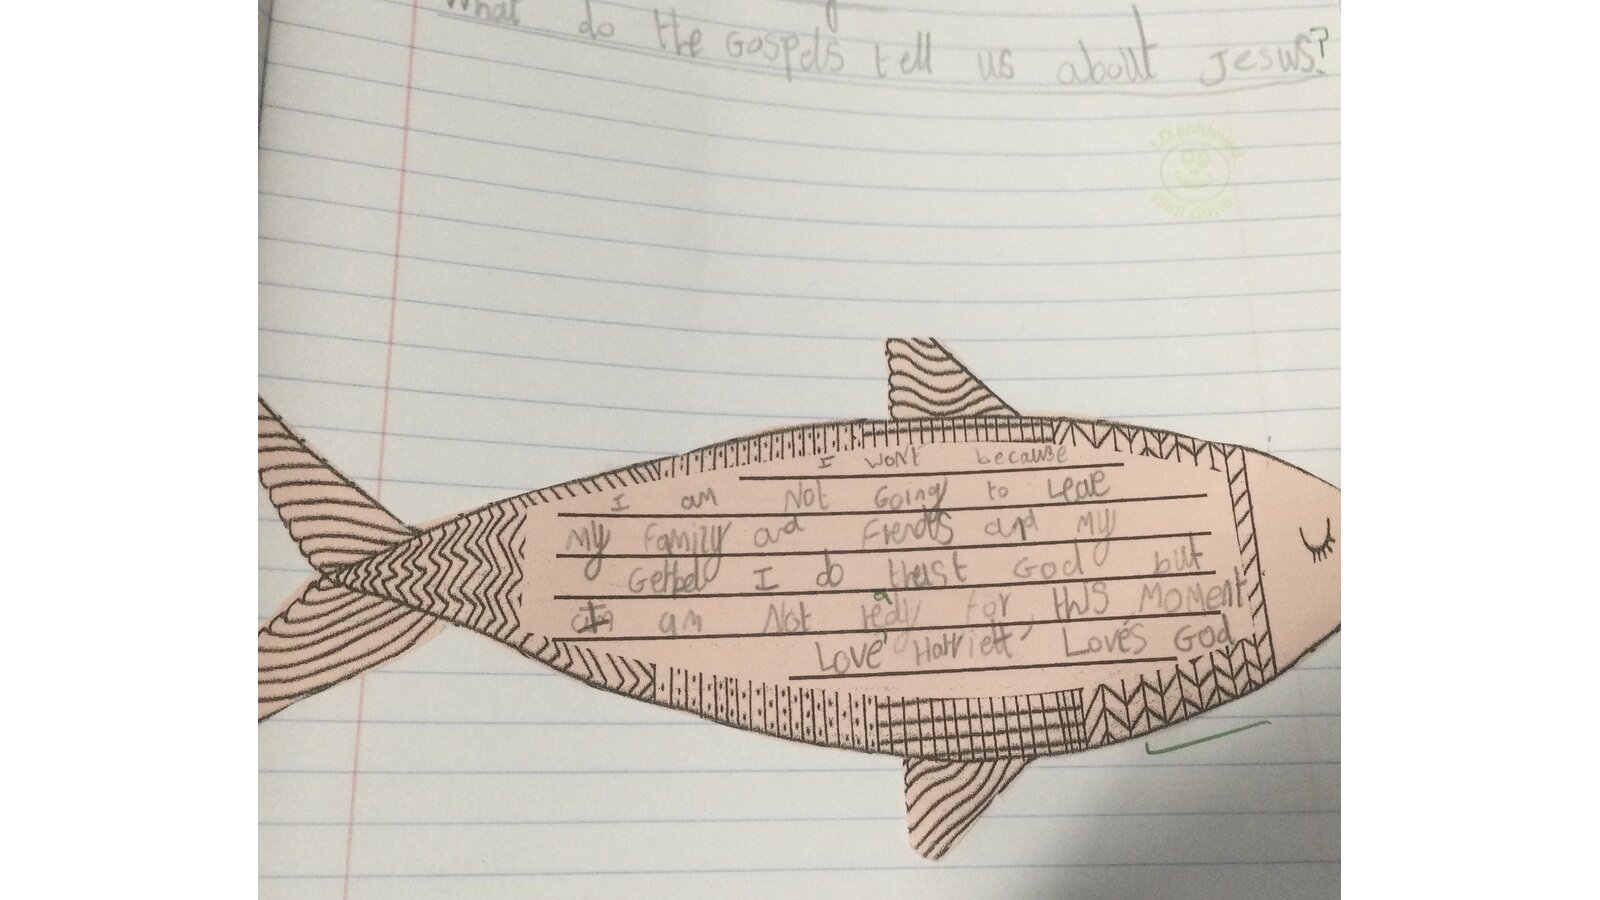 What do the Gospels tell us about Jesus?
LO achieved
Well done
I wont because
I am Not Going to Leae
My Family and Fiends and My
I do thrust God but
I am Not redly For this Moment
Love Harriett, Loves God